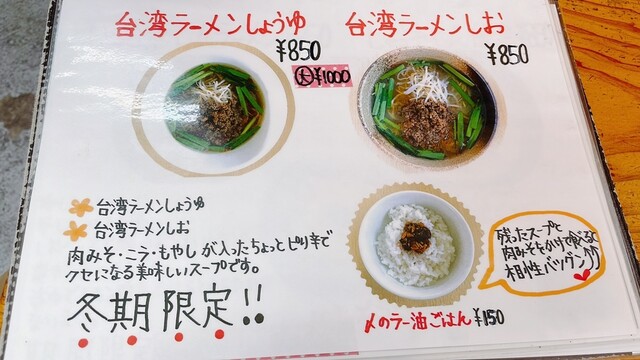 台湾ラーメンしょうゆ
¥850
大¥1000
台湾ラーメンしお
¥850
台湾ラーメンしょうゆ
台湾ラーメンしお
肉みそ・ニラ・もやしが入ったちょっとピリ辛で
クセになる美味しいスープです。
冬期限定!!
残ったスープと
肉みそをかけて食べると
相性バツグン
〆のラー油ごはん ¥150